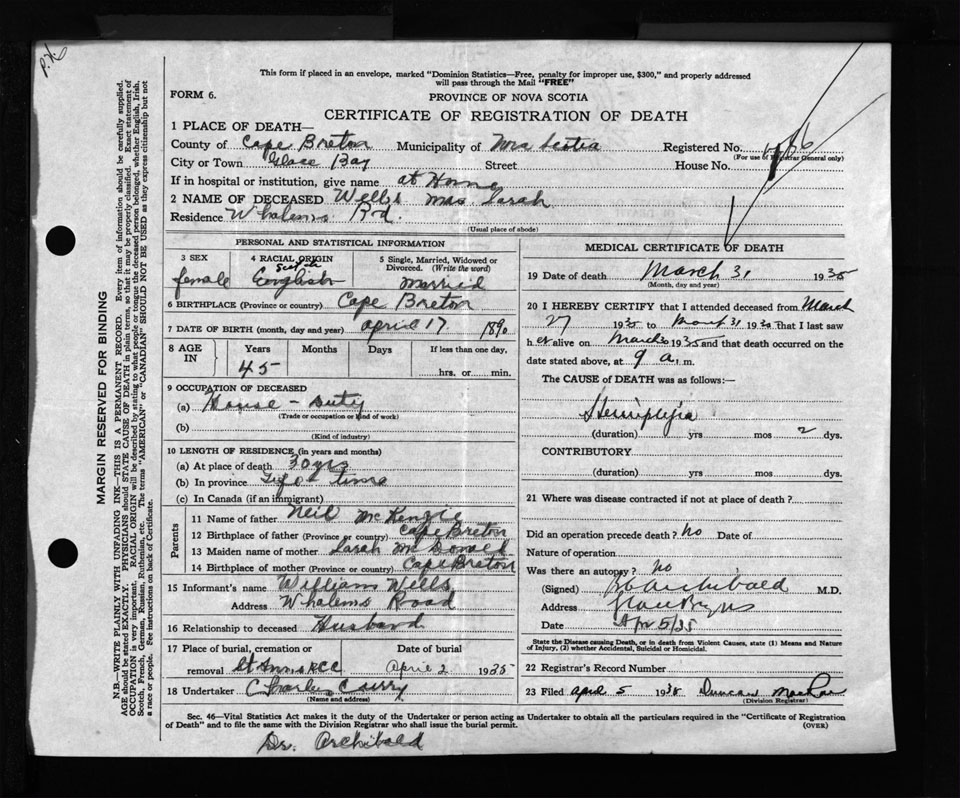 P.X.
This form if placed in an envelope, marked "Dominion Statistics—Free, penalty for improper use, $300," and properly addressed
will pass through the Mail "FREE"
FORM 6.
PROVINCE OF NOVA SCOTIA
CERTIFICATE OF REGISTRATION OF DEATH
1 PLACE OF DEATH—
County of Cape Breton Municipality of Scotia Registered No.
(For use of Registrar General only)
City or Town Glace Bay Street House No.
If in hospital or institution, give name at Home
2 NAME OF DECEASED Wells Mrs Sarah
Residence Whalens Rd.
(Usual place of abode)
PERSONAL AND STATISTICAL INFORMATION
3 SEX 4 RACIAL ORIGIN 5 Single, Married, Widowed or
Divorced. (Write the word)
Scotch
female English Married
6 BIRTHPLACE (Province or country) Cape Breton
7 DATE OF BIRTH (month, day and year) april 17 1890
8 AGE IN Years Months Days If less than one day,
45 hrs. or min.
9 OCCUPATION OF DECEASED
(a) House - Duty
(Trade or occupation or kind of work)
(b)
(Kind of industry)
10 LENGTH OF RESIDENCE (in years and months)
(a) At place of death 30 yrs
(b) In province time
(c) In Canada (if an immigrant)
Parents
11 Name of father Neil McKenzie
12 Birthplace of father (Province or country) Cape Breton
13 Maiden name of mother Sarah McDonald
14 Birthplace of mother (Province or country) Cape Breton
15 Informant's name William Wells
Address Whalens Road
16 Relationship to deceased Husband
17 Place of burial, cremation or Date of burial
removal St Anns RCC April 2 1935
18 Undertaker Charles Curry
(Name and address)
MEDICAL CERTIFICATE OF DEATH
19 Date of death March 31 1935
(Month, day and year)
20 I HEREBY CERTIFY that I attended deceased from March
27 1935 to 31 1935 that I last saw
her alive on March 30 1935 and that death occurred on the
date stated above, at 9 a. m.
The CAUSE of DEATH was as follows:—
Hemiplegia
(duration) yrs mos 2 dys.
CONTRIBUTORY
(duration) yrs mos dys.
21 Where was disease contracted if not at place of death?
Did an operation precede death? No Date of
Nature of operation
Was there an autopsy? No
(Signed) Archibald M.D.
Address Glace Bay NS
Date Apr 5/35
State the Disease causing Death, or in death from Violent Causes, state (1) Means and Nature
of Injury, (2) whether Accidental, Suicidal or Homicidal.
22 Registrar's Record Number
23 Filed april 5 1935 Duncan MacRae
(Division Registrar)
Sec. 46—Vital Statistics Act makes it the duty of the Undertaker or person acting as Undertaker to obtain all the particulars required in the "Certificate of Registration
of Death" and to file the same with the Division Registrar who shall issue the burial permit. (OVER)
Dr. Archibald
MARGIN RESERVED FOR BINDING
N.B.—WRITE PLAINLY WITH UNFADING INK—THIS IS A PERMANENT RECORD. Every item of information should be carefully supplied.
AGE should be stated EXACTLY. PHYSICIANS should STATE CAUSE OF DEATH in plain terms, so that it may be properly classified. Exact statement of
OCCUPATION is very important. RACIAL ORIGIN will be described by stating to what people or tongue the deceased person belonged, whether English, Irish,
Scotch, French, German, Russian, Ruthenian, etc. The terms "AMERICAN" or "CANADIAN" SHOULD NOT BE USED as they express citizenship but not
a race or people. See instructions on back of Certificate.